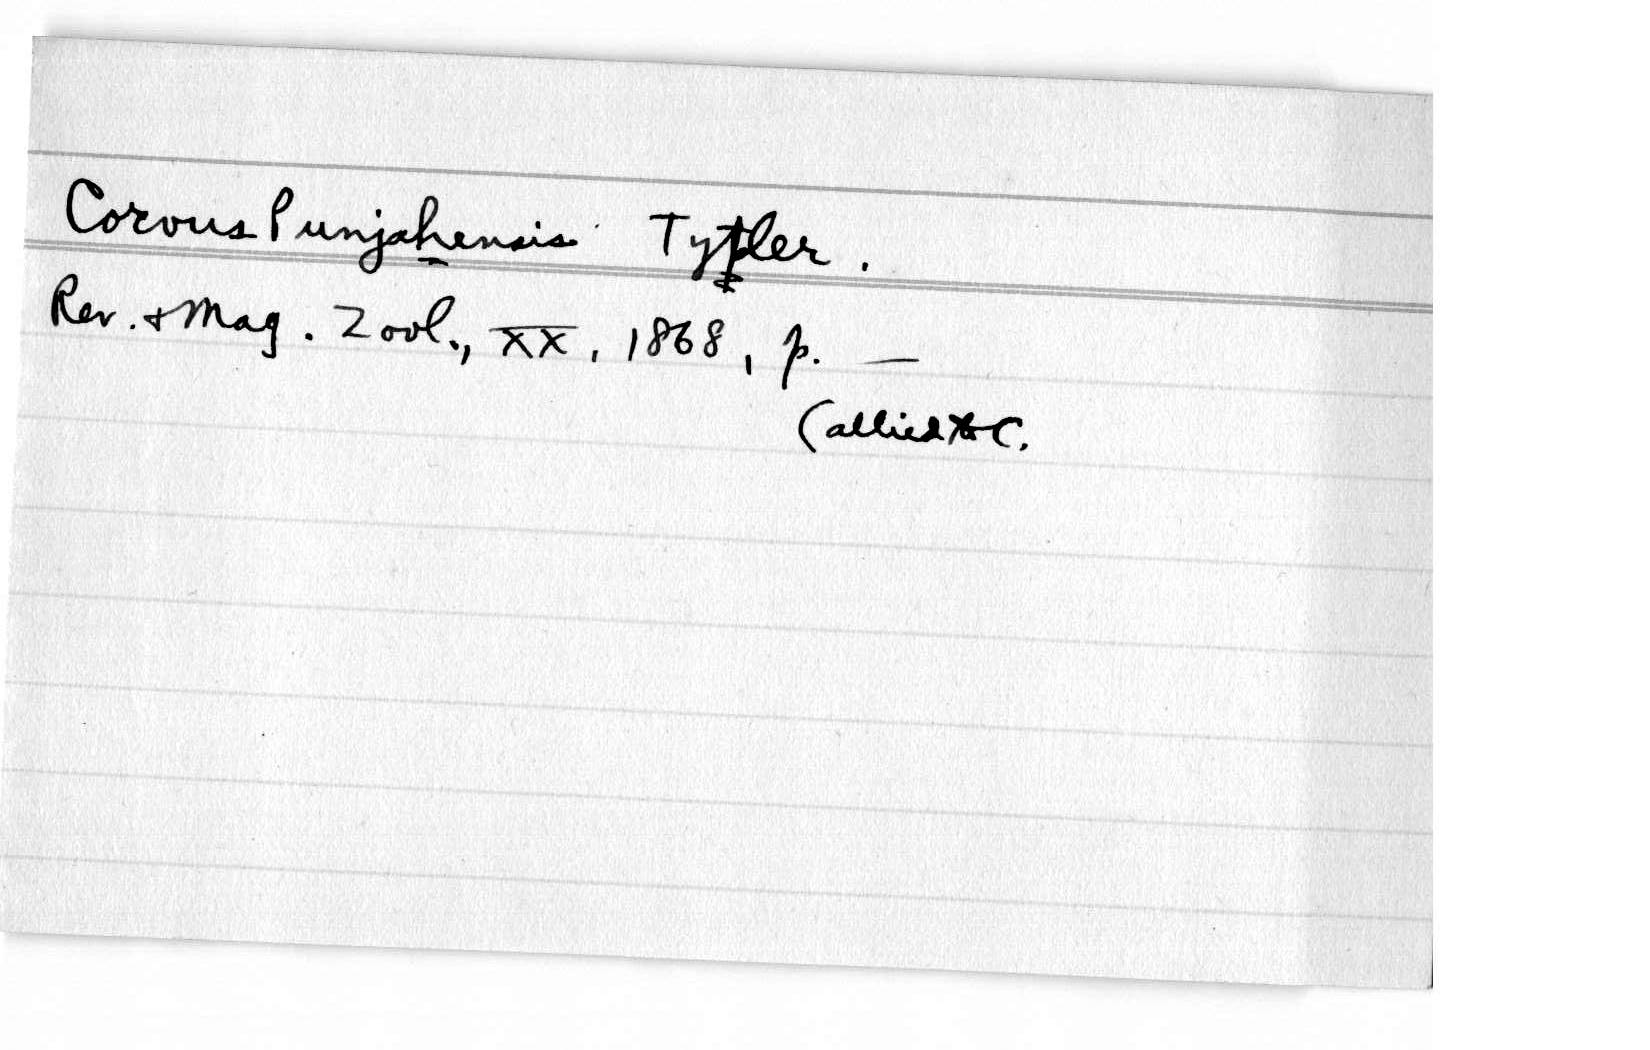 Corvus Punjahensis Tytler.
Rev. & Mag. Zool., XX, 1868, p. —
(allied to C.